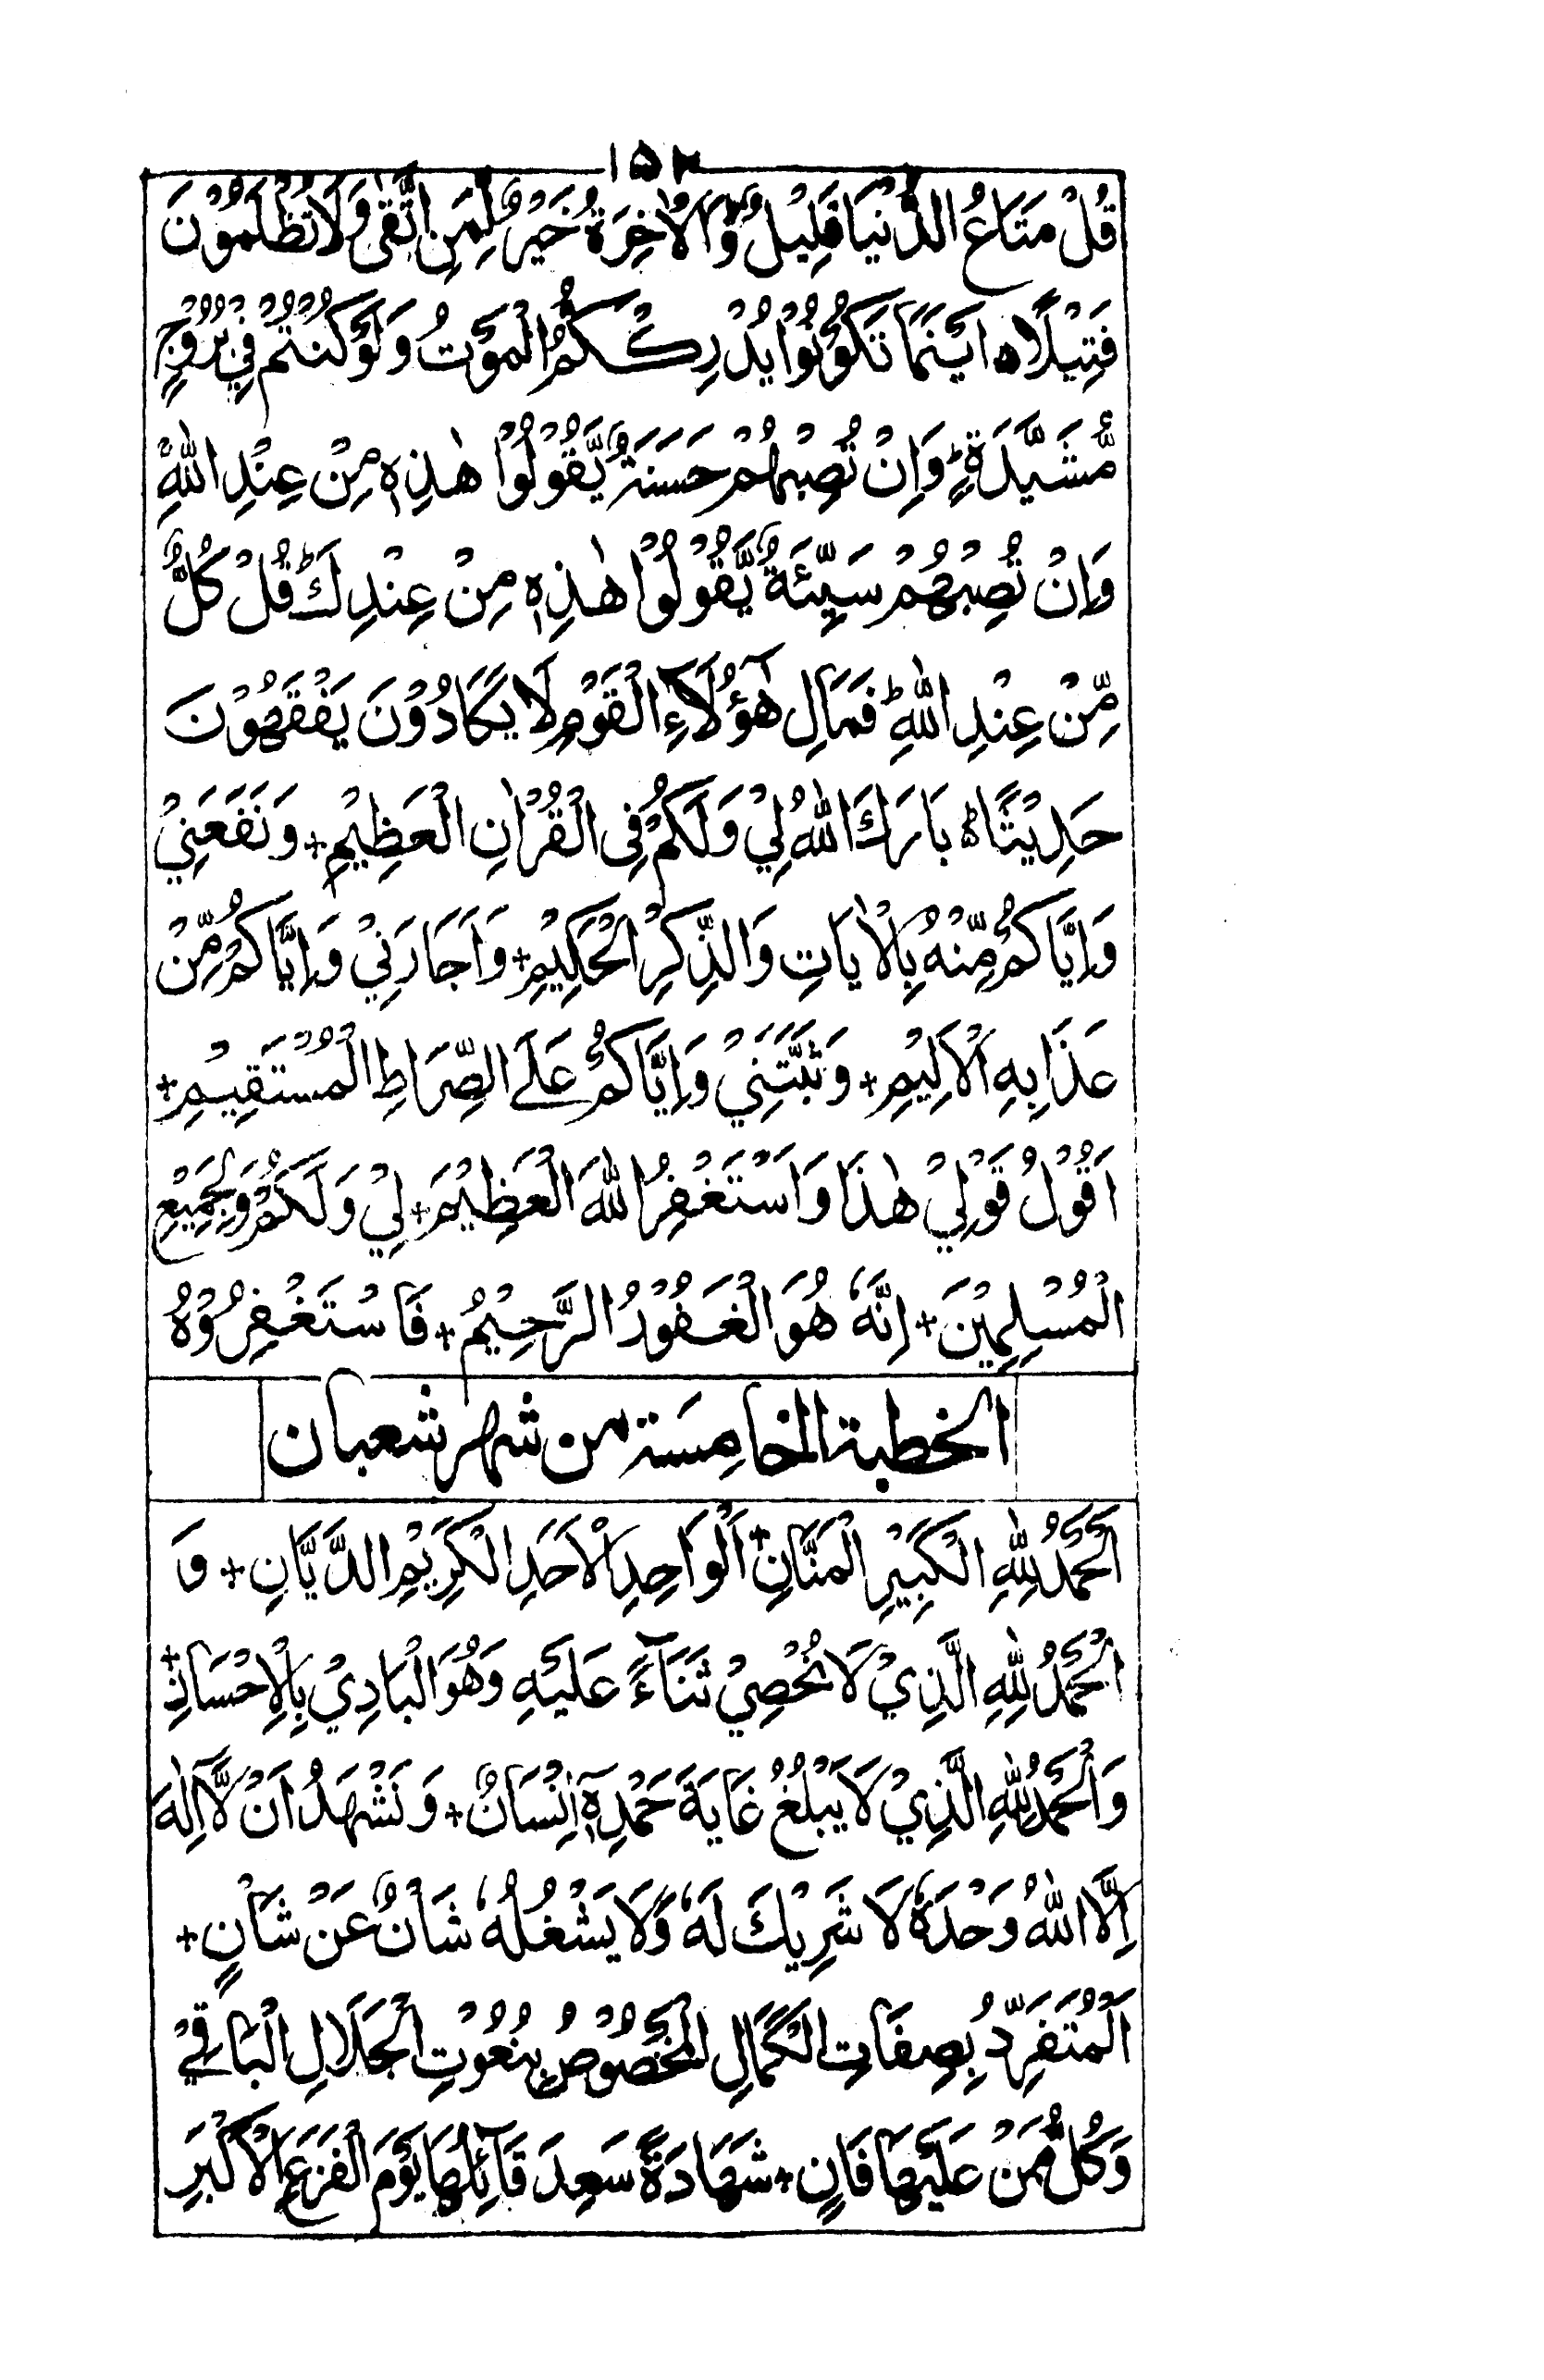 ١٥٢
قُلْ مَتَاعُ الدُّنْيَا قَلِيْلٌ وَّالْاٰخِرَةُ خَيْرٌ لِّمَنِ اتَّقٰى وَلَا تُظْلَمُوْنَ
فَتِيْلًا ٥ اَيْنَمَا تَكُوْنُوْا يُدْرِكْكُّمُ الْمَوْتُ وَلَوْ كُنْتُمْ فِيْ بُرُوْجٍ
مُّشَيَّدَةٍ ؕ وَاِنْ تُصِبْهُمْ حَسَنَةٌ يَّقُوْلُوْا هٰذِهٖ مِنْ عِنْدِ اللهِ
وَاِنْ تُصِبْهُمْ سَيِّئَةٌ يَّقُوْلُوْا هٰذِهٖ مِنْ عِنْدِكَ ؕ قُلْ كُلٌّ
مِّنْ عِنْدِ اللهِ ؕ فَمَالِ هٰٓؤُلَآءِ الْقَوْمِ لَا يَكَادُوْنَ يَفْقَهُوْنَ
حَدِيْثًا ٥ بَارَكَ اللهُ لِيْ وَلَكُمْ فِى الْقُرْاٰنِ الْعَظِيْمِ + وَنَفَعَنِيْ
وَاِيَّاكُمْ مِّنْهُ بِالْاٰيَاتِ وَالذِّكْرِ الْحَكِيْمِ + وَاَجَارَنِيْ وَاِيَّاكُمْ مِّنْ
عَذَابِهِ الْاَلِيْمِ + وَثَبَّتَنِيْ وَاِيَّاكُمْ عَلَے الصِّرَاطِ الْمُسْتَقِيْمِ +
اَقُوْلُ قَوْلِيْ هٰذَا وَاَسْتَغْفِرُ اللهَ الْعَظِيْمَ + لِيْ وَلَكُمْ وَلِجَمِيْعِ
الْمُسْلِمِيْنَ + اِنَّهٗ هُوَ الْغَفُوْرُ الرَّحِيْمُ + فَاسْتَغْفِرُوْهُ
الخطبة الخامِسَة من شهر شعبان
اَلْحَمْدُ لِلّٰهِ الْكَبِيْرِ الْمَنَّانِ + اَلْوَاحِدِ الْاَحَدِ الْكَرِيْمِ الدَّيَّانِ + وَ
الْحَمْدُ لِلّٰهِ الَّذِيْ لَا نُحْصِيْ ثَنَآءً عَلَيْهِ وَهُوَ الْبَادِيْ بِالْاِحْسَانِ +
وَالْحَمْدُ لِلّٰهِ الَّذِيْ لَا يَبْلُغُ غَايَةَ حَمْدِهٖٓ اِنْسَانٌ + وَنَشْهَدُ اَنْ لَّآ اِلٰهَ
اِلَّا اللهُ وَحْدَهٗ لَا شَرِيْكَ لَهٗ وَلَا يَشْغُلُهٗ شَاْنٌ عَنْ شَاْنٍ +
اَلْمُتَفَرِّدُ بِصِفَاتِ الْكَمَالِ الْمَخْصُوْصُ بِنُعُوْتِ الْجَلَالِ الْبَاقِيْ
وَكُلُّ مَنْ عَلَيْهَا فَانٍ + شَهَادَةً سَعِدَ قَآئِلُهَا يَوْمَ الْفَزَعِ الْاَكْبَرِ